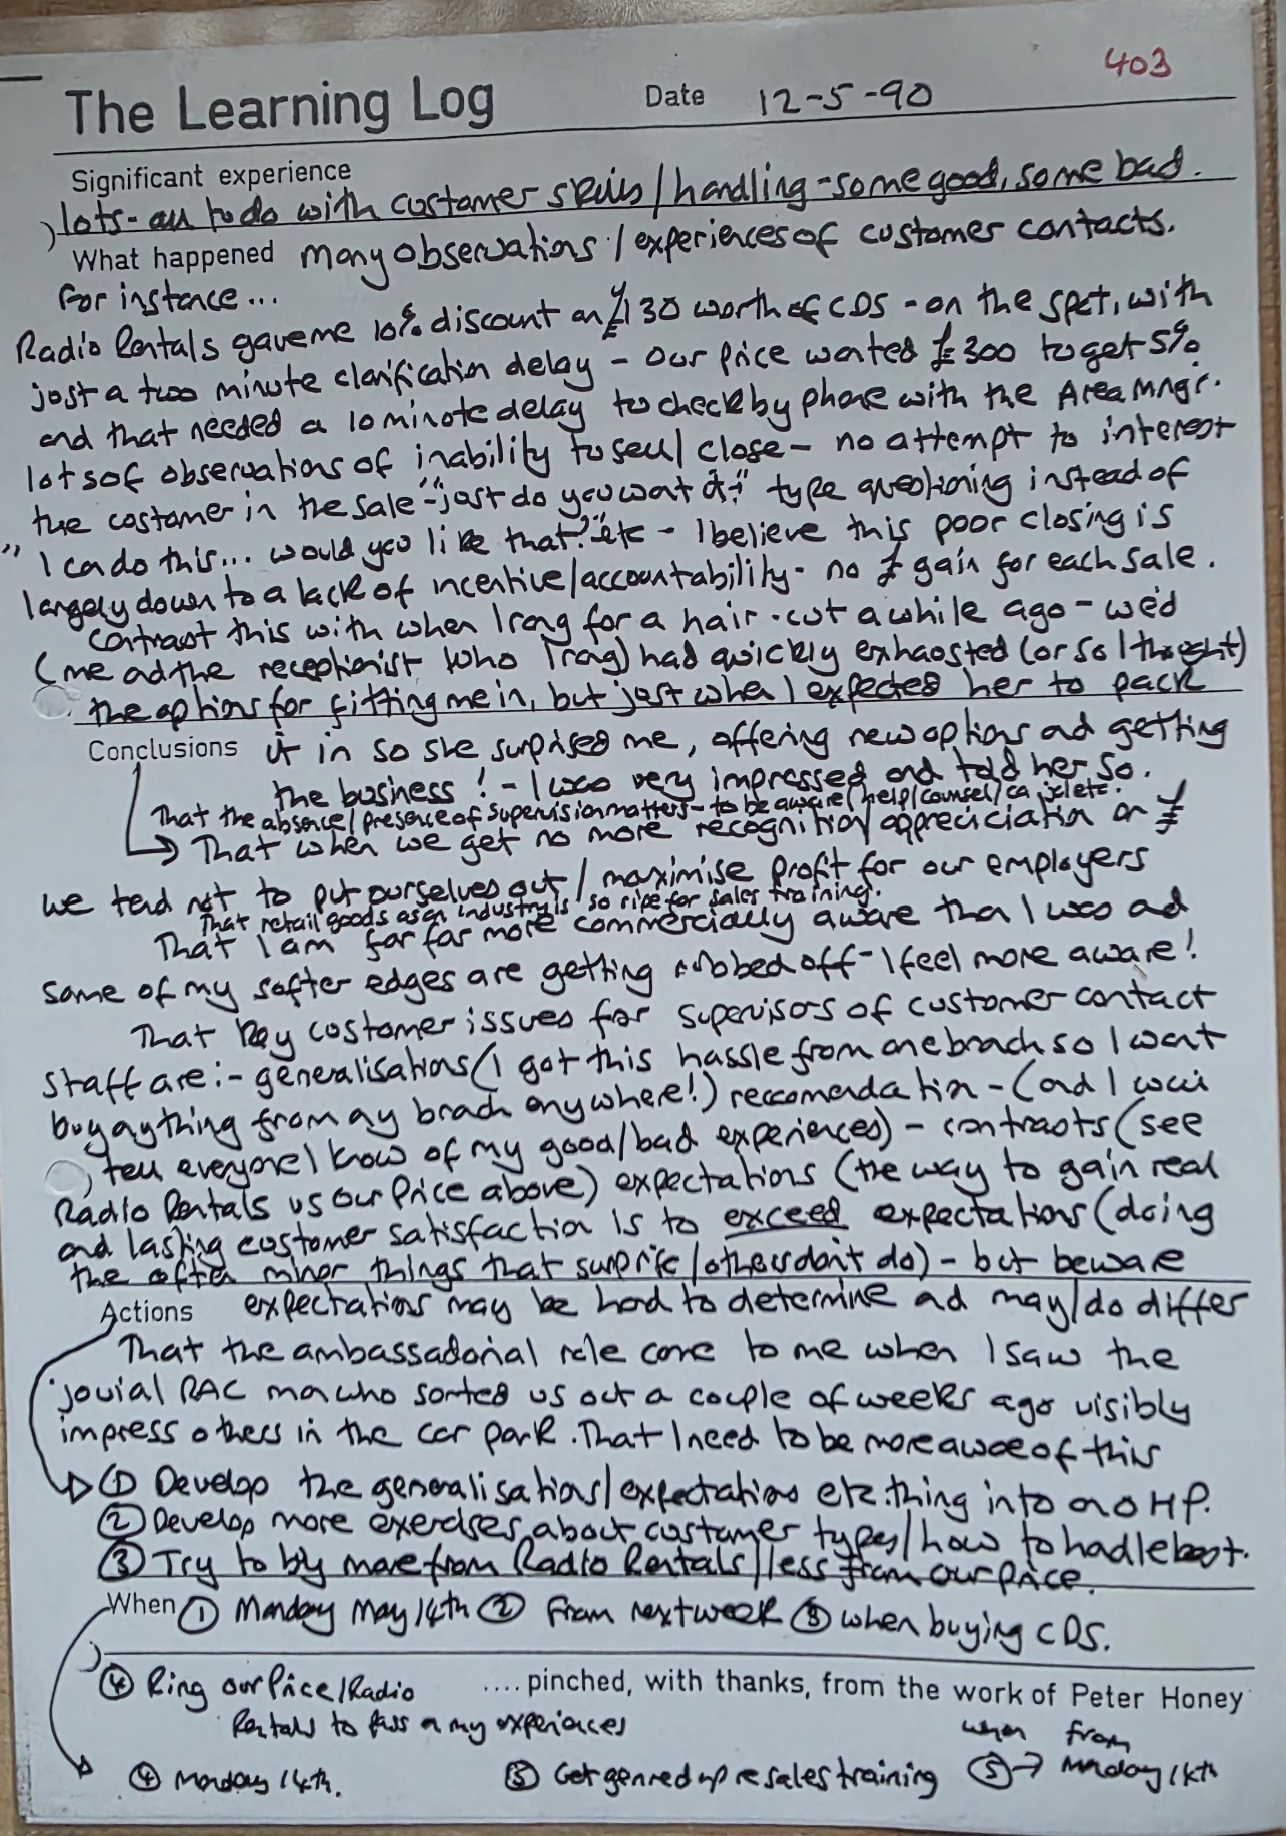 403
The Learning Log Date 12-5-90
Significant experience
lots - all to do with customer skills / handling - some good, some bad.
What happened many observations / experiences of customer contacts.
For instance...
Radio Rentals gave me 10% discount on £130 worth of CDS - on the spot, with
just a two minute clarification delay - Our Price wanted £300 to get 5%
and that needed a 10 minute delay to check by phone with the Area Mngr.
lots of observations of inability to sell / close - no attempt to interest
the customer in the sale - "just do you want it?" type questioning instead of
"I can do this... would you like that?" etc - I believe this poor closing is
largely down to a lack of incentive/accountability - no £ gain for each sale.
Contrast this with when I rang for a hair-cut a while ago - we'd
(me and the receptionist who I rang) had quickly exhausted (or so I thought)
the options for fitting me in, but just when I expected her to pack
Conclusions it in so she surprised me, offering new options and getting
the business! - I was very impressed and told her so.
That the absence/presence of supervision matters - to be aware/help/counsel/
That when we get no more recognition/appreciation or £
we tend not to put ourselves out / maximise profit for our employers
That retail goods as an industry is so ripe for sales training.
That I am far far more commercially aware than I was and
some of my softer edges are getting rubbed off - I feel more aware!
That key customer issues for supervisors of customer contact
staff are :- generalisations (I got this hassle from one branch so I won't
buy anything from any branch anywhere!) reccomendation - (and I will
tell everyone I know of my good/bad experiences) - contrasts (see
Radio Rentals vs Our Price above) expectations (the way to gain real
and lasting customer satisfaction is to exceed expectations (doing
the often minor things that surprise / others don't do) - but beware
Actions expectations may be hard to determine and may/do differ
That the ambassadorial role came to me when I saw the
jovial RAC man who sorted us out a couple of weeks ago visibly
impress others in the car park. That I need to be more aware of this
① Develop the generalisations/expectations etc. thing into an OHP.
② Develop more exercises about customer types / how to handle best.
③ Try to buy more from Radio Rentals / less from Our Price.
When ① Monday May 14th ② From next week ③ when buying CDS.
④ Ring Our Price/Radio .... pinched, with thanks, from the work of Peter Honey
Rentals to pass on my experiences when from
④ Monday 14th. ⑤ Get genned up re sales training ⑤ → Monday 14th